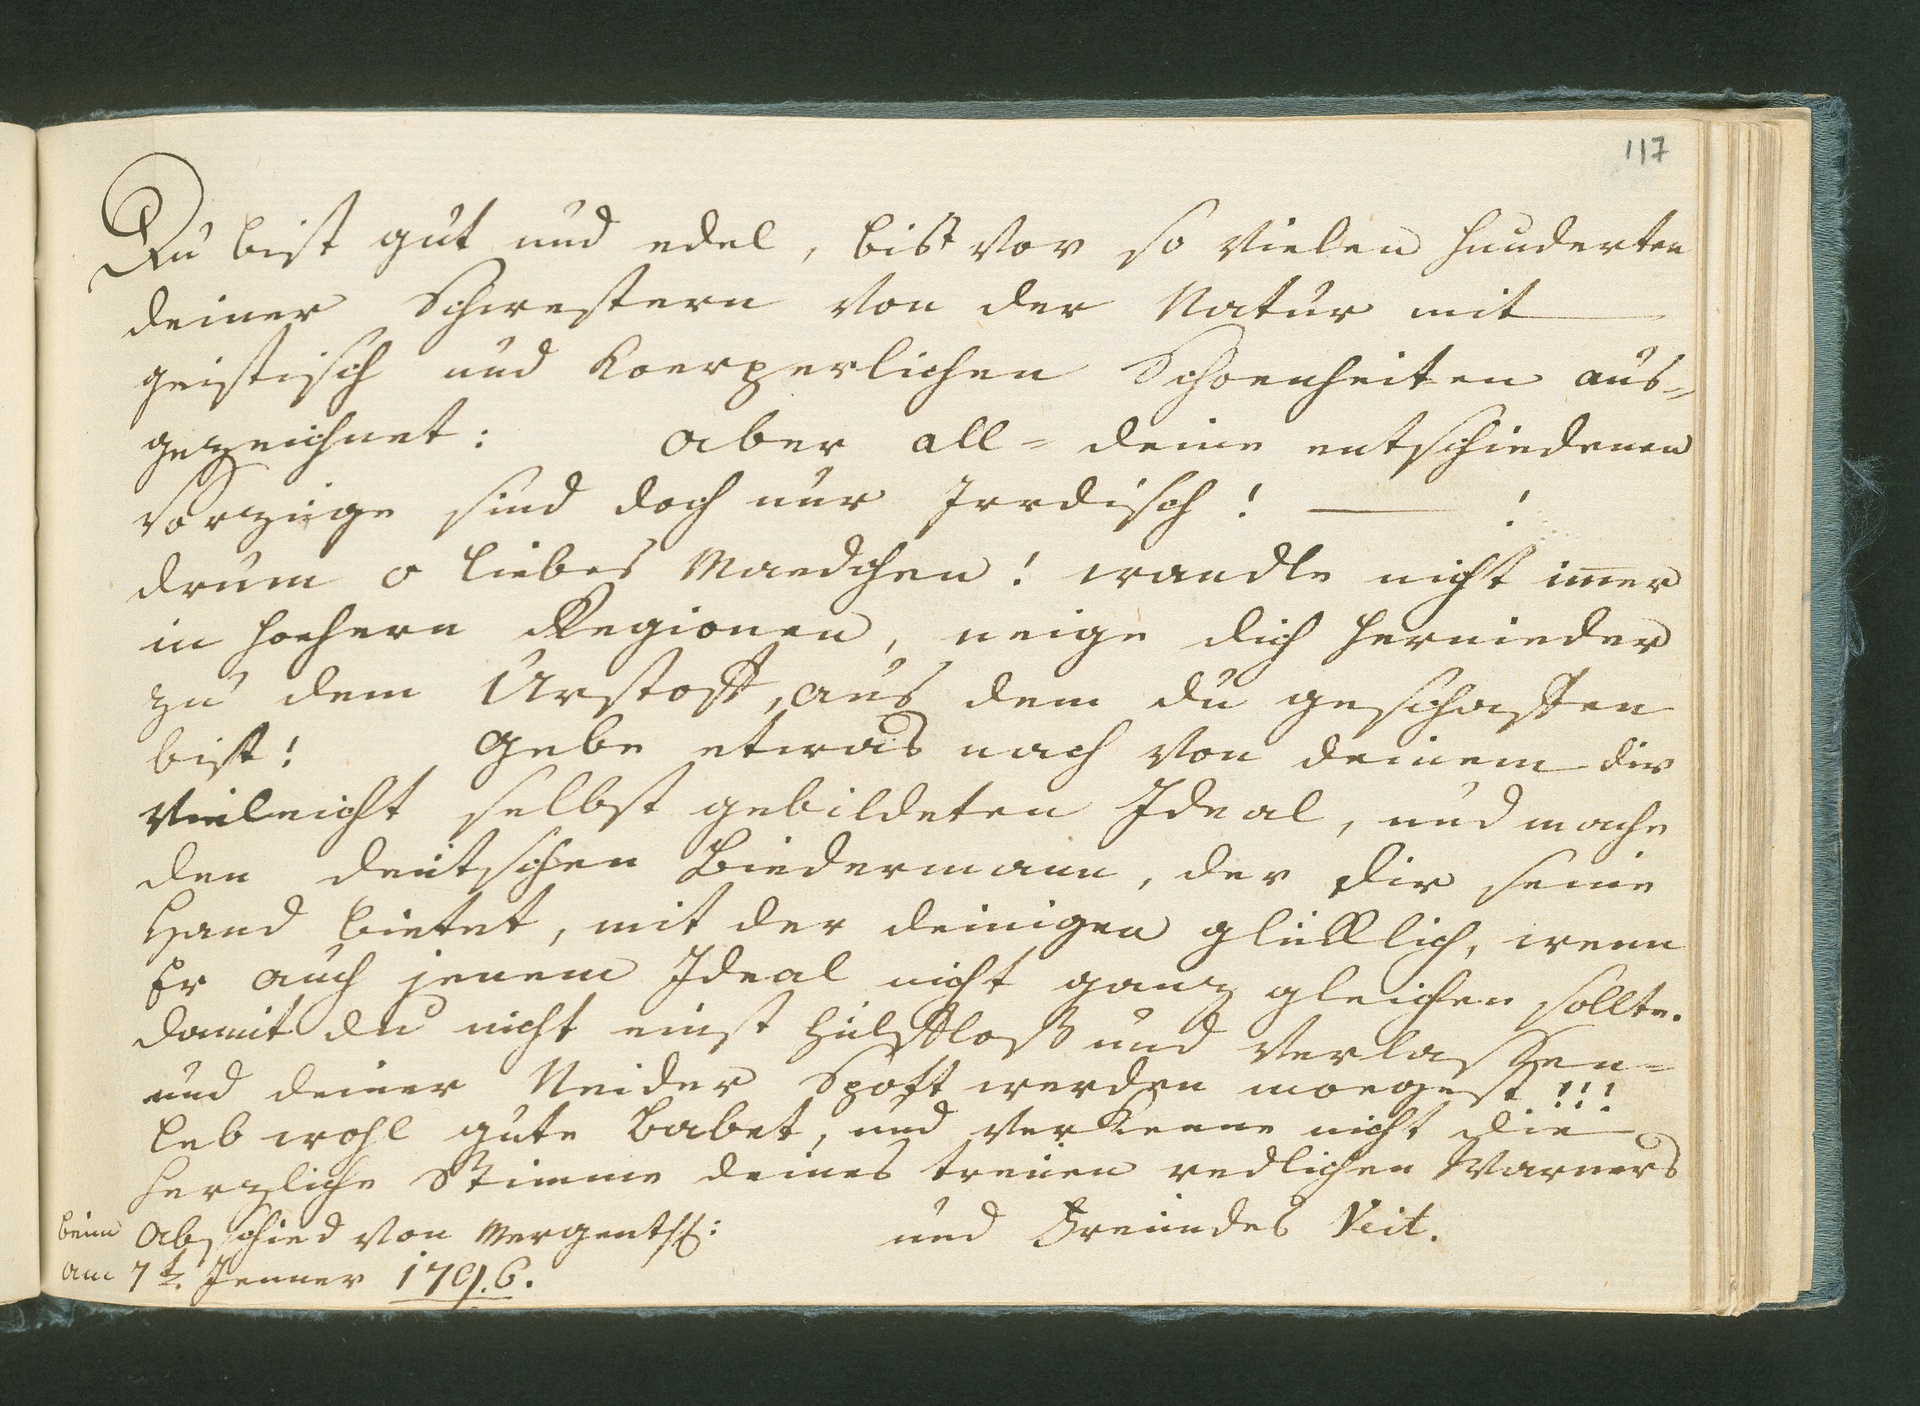 117
Du bist gut und edel, bist vor so vielen hunderten
deiner Schwestern von der Natur mit —
geistisch und koerperlichen Schoenheiten aus=
gezeichnet: aber all= deine entschiedenen
Vorzüge sind doch nur Irrdisch! — !
drum o liebes Maedchen! wandle nicht im̅er
in hoehern Regionen, neige dich hernieder
zu dem Urstoff, aus dem du geschaffen
bist! Gebe etwas nach von deinem dir
vieleicht selbst gebildeten Ideal, und mache
den deutschen Biedermann, der dir seine
Hand bietet, mit der deinigen glücklich, wenn
Er auch jenem Ideal nicht ganz gleichen sollte.
damit du nicht einst hülffloß und verlassen=
und deiner Neider Spott werden moegest!!!
leb wohl gute Babet, und verkenne nicht die
herzliche Stimme deines treuen redlichen Warners
und Freundes Veit.
beim Abschied von Mergenth:
am 7t Jenner 1796.